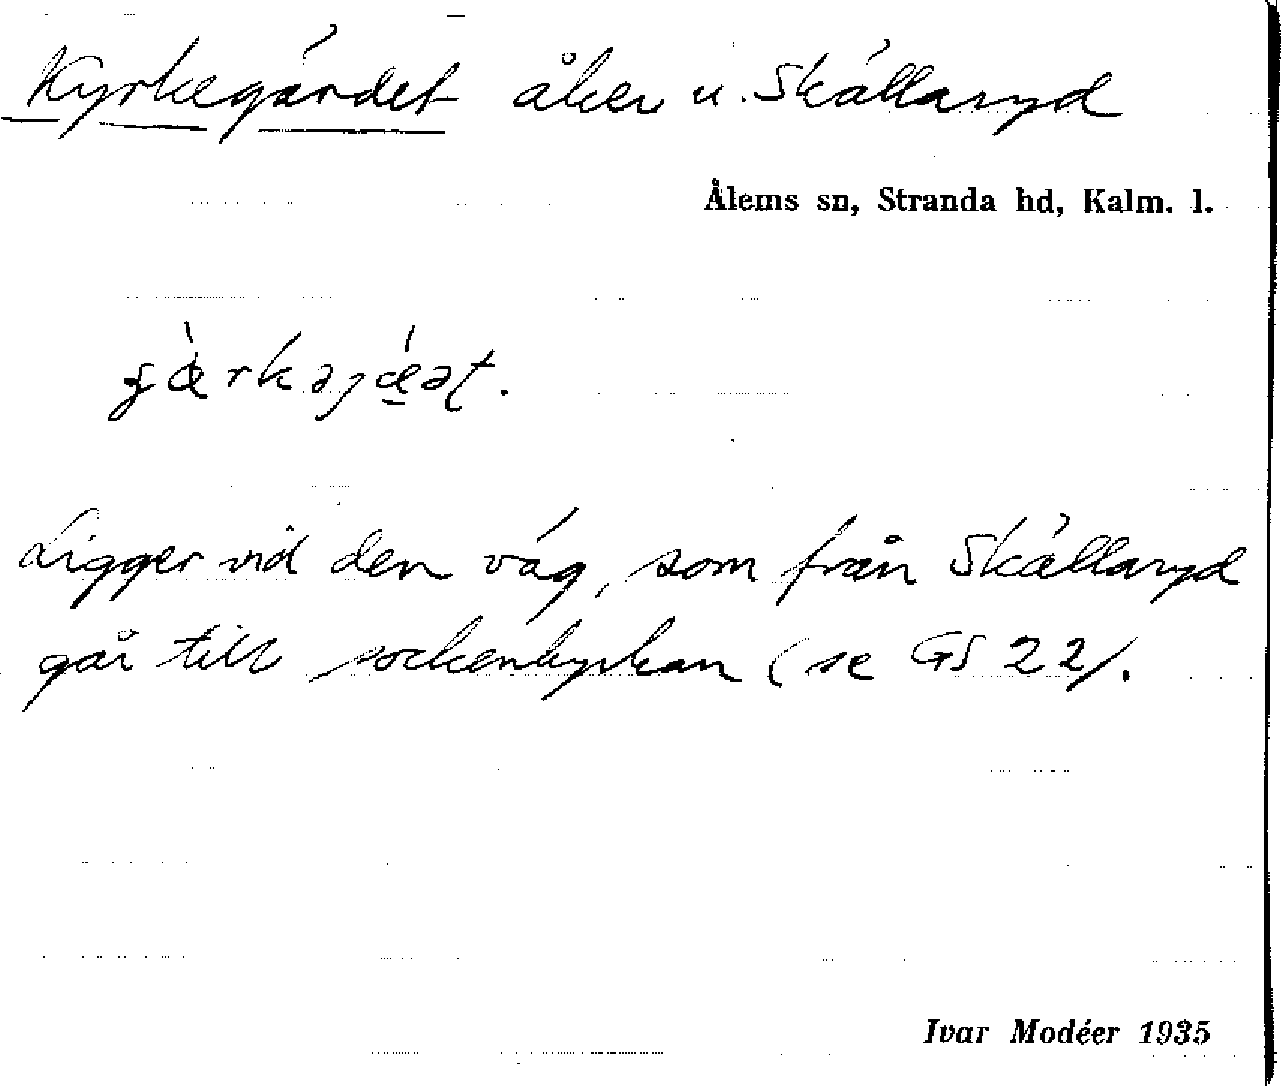 Kyrkegärdet åker u. Skällaryd
Ålems sn, Stranda hd, Kalm. l.
Ligger vid den väg, som från Skällaryd
går till sockenkyrkan (se GS 22).
Ivar Modéer 1935